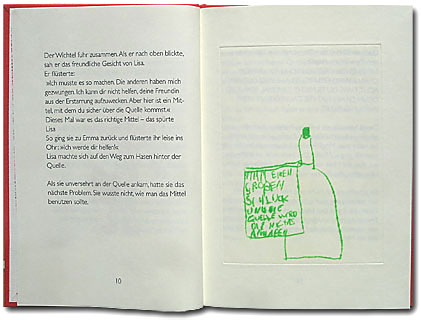 Der Wichtel fuhr zusammen. Als er nach oben blickte,
sah er das freundliche Gesicht von Lisa.
Er flüsterte:
»Ich musste es so machen. Die anderen haben mich
gezwungen. Ich kann dir nicht helfen, deine Freundin
aus der Erstarrung aufzuwecken. Aber hier ist ein Mit-
tel, mit dem du sicher über die Quelle kommst.«
Dieses Mal war es das richtige Mittel – das spürte
Lisa.
So ging sie zu Emma zurück und flüsterte ihr leise ins
Ohr: »Ich werde dir helfen!«
Lisa machte sich auf den Weg zum Hasen hinter der
Quelle.
Als sie unversehrt an der Quelle ankam, hatte sie das
nächste Problem. Sie wusste nicht, wie man das Mittel
benutzen sollte.
10
EINEN
GROßEN
SCHLUCK
UND DIE
QUELLE WIRD
DIR NICHTS